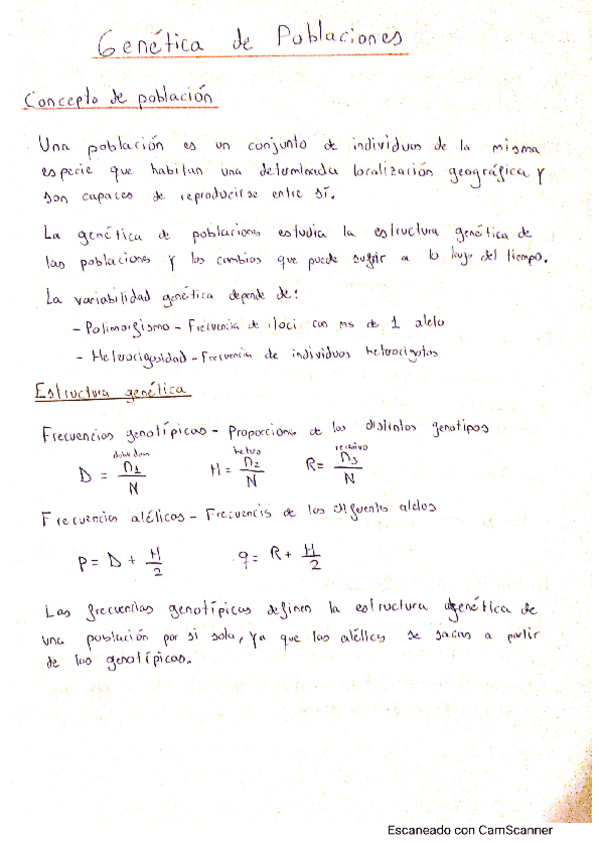 Genética de Poblaciones
Concepto de población
Una población es un conjunto de individuos de la misma
especie que habitan una determinada localización geográfica y
son capaces de reproducirse entre sí.
La genética de poblaciones estudia la estructura genética de
las poblaciones y los cambios que puede sufrir a lo largo del tiempo.
La variabilidad genética depende de:
- Polimorfismo - Frecuencia de loci con ms de 1 alelo
- Heterocigosidad - Frecuencia de individuos heterocigotos
Estructura genética
Frecuencias genotípicas - Proporciones de los distintos genotipos
D = n1/N H = n2/N R = n3/N
hetero
Frecuencias alélicas - Frecuencia de los diferentes alelos
P = D + H/2 q = R + H/2
Las frecuencias genotípicas definen la estructura genética de
una población por si sola, ya que las alélicas se sacan a partir
de las genotípicas.
Escaneado con CamScanner